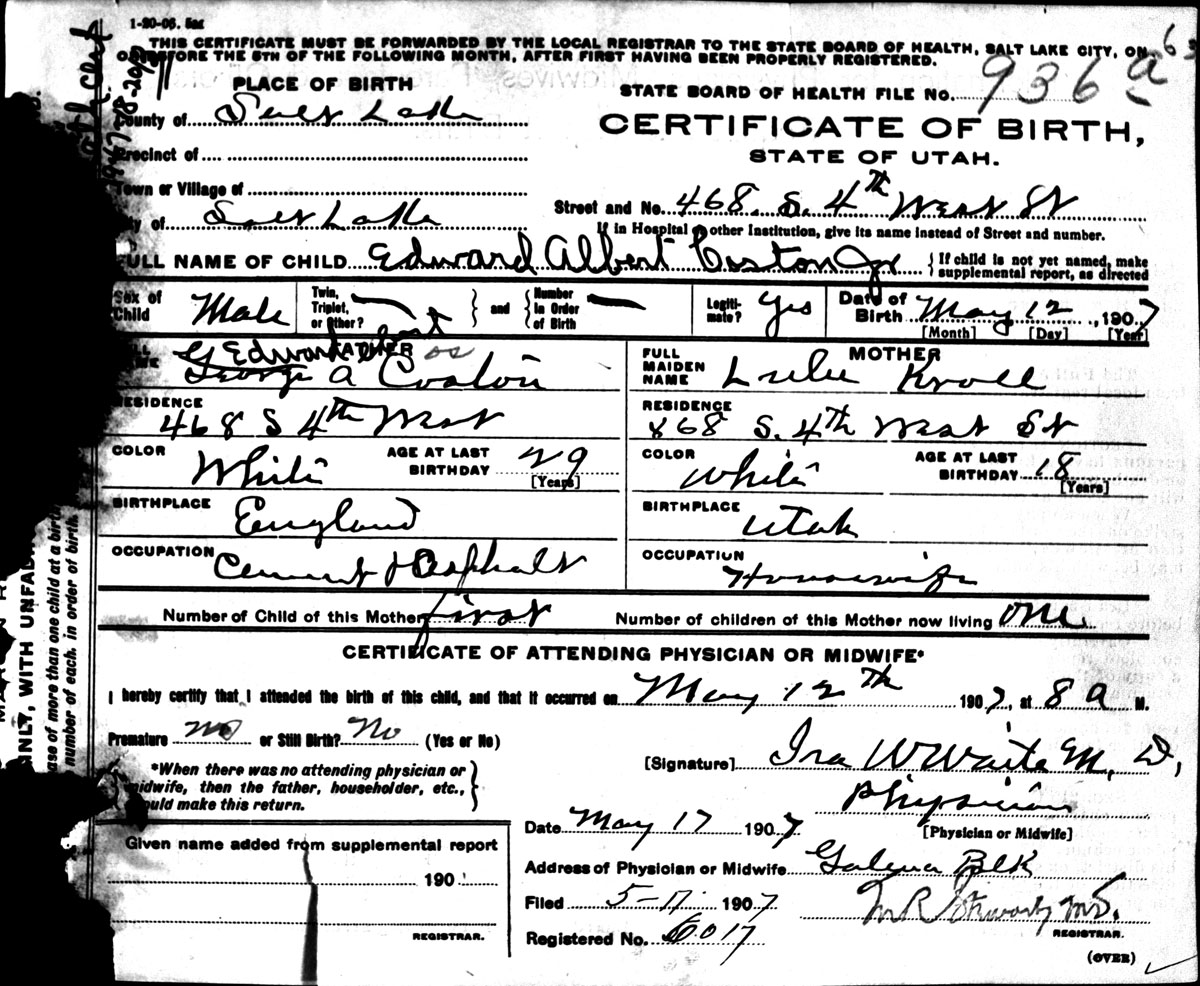 1-20-06. 5m
THIS CERTIFICATE MUST BE FORWARDED BY THE LOCAL REGISTRAR TO THE STATE BOARD OF HEALTH, SALT LAKE CITY, ON
OR BEFORE THE 5TH OF THE FOLLOWING MONTH, AFTER FIRST HAVING BEEN PROPERLY REGISTERED.
PLACE OF BIRTH
STATE BOARD OF HEALTH FILE NO. 936 a
County of Salt Lake
CERTIFICATE OF BIRTH,
STATE OF UTAH.
Precinct of
Town or Village of
City of Salt Lake
Street and No. 468. S. 4th West St
If in Hospital or other Institution, give its name instead of Street and number.
FULL NAME OF CHILD Edward Albert Coston Jr
If child is not yet named, make supplemental report, as directed
Sex of Child Male
Twin, Triplet, or Other? and Number in Order of Birth
Legitimate? Yes
Date of Birth May 12, 1907
[Month] [Day] [Year]
FATHER
Edward
George A Coston
RESIDENCE
468 S 4th West
COLOR White
AGE AT LAST BIRTHDAY 29
[Years]
BIRTHPLACE
England
OCCUPATION
Cement & Asphalt
MOTHER
FULL MAIDEN NAME Lulu Kroll
RESIDENCE
468 S. 4th West St
COLOR White
AGE AT LAST BIRTHDAY 18
[Years]
BIRTHPLACE
Utah
OCCUPATION
Housewife
Number of Child of this Mother first
Number of children of this Mother now living one
CERTIFICATE OF ATTENDING PHYSICIAN OR MIDWIFE*
I hereby certify that I attended the birth of this child, and that it occurred on May 12th 1907, at 8 a M.
Premature no or Still Birth? No (Yes or No)
*When there was no attending physician or
midwife, then the father, householder, etc.,
should make this return.
[Signature] Ira W Waite M. D,
Physician
[Physician or Midwife]
Date May 17 1907
Given name added from supplemental report
190
REGISTRAR.
Address of Physician or Midwife Galena Blk
Filed 5-17 1907
REGISTRAR.
Registered No. 6017
(OVER)